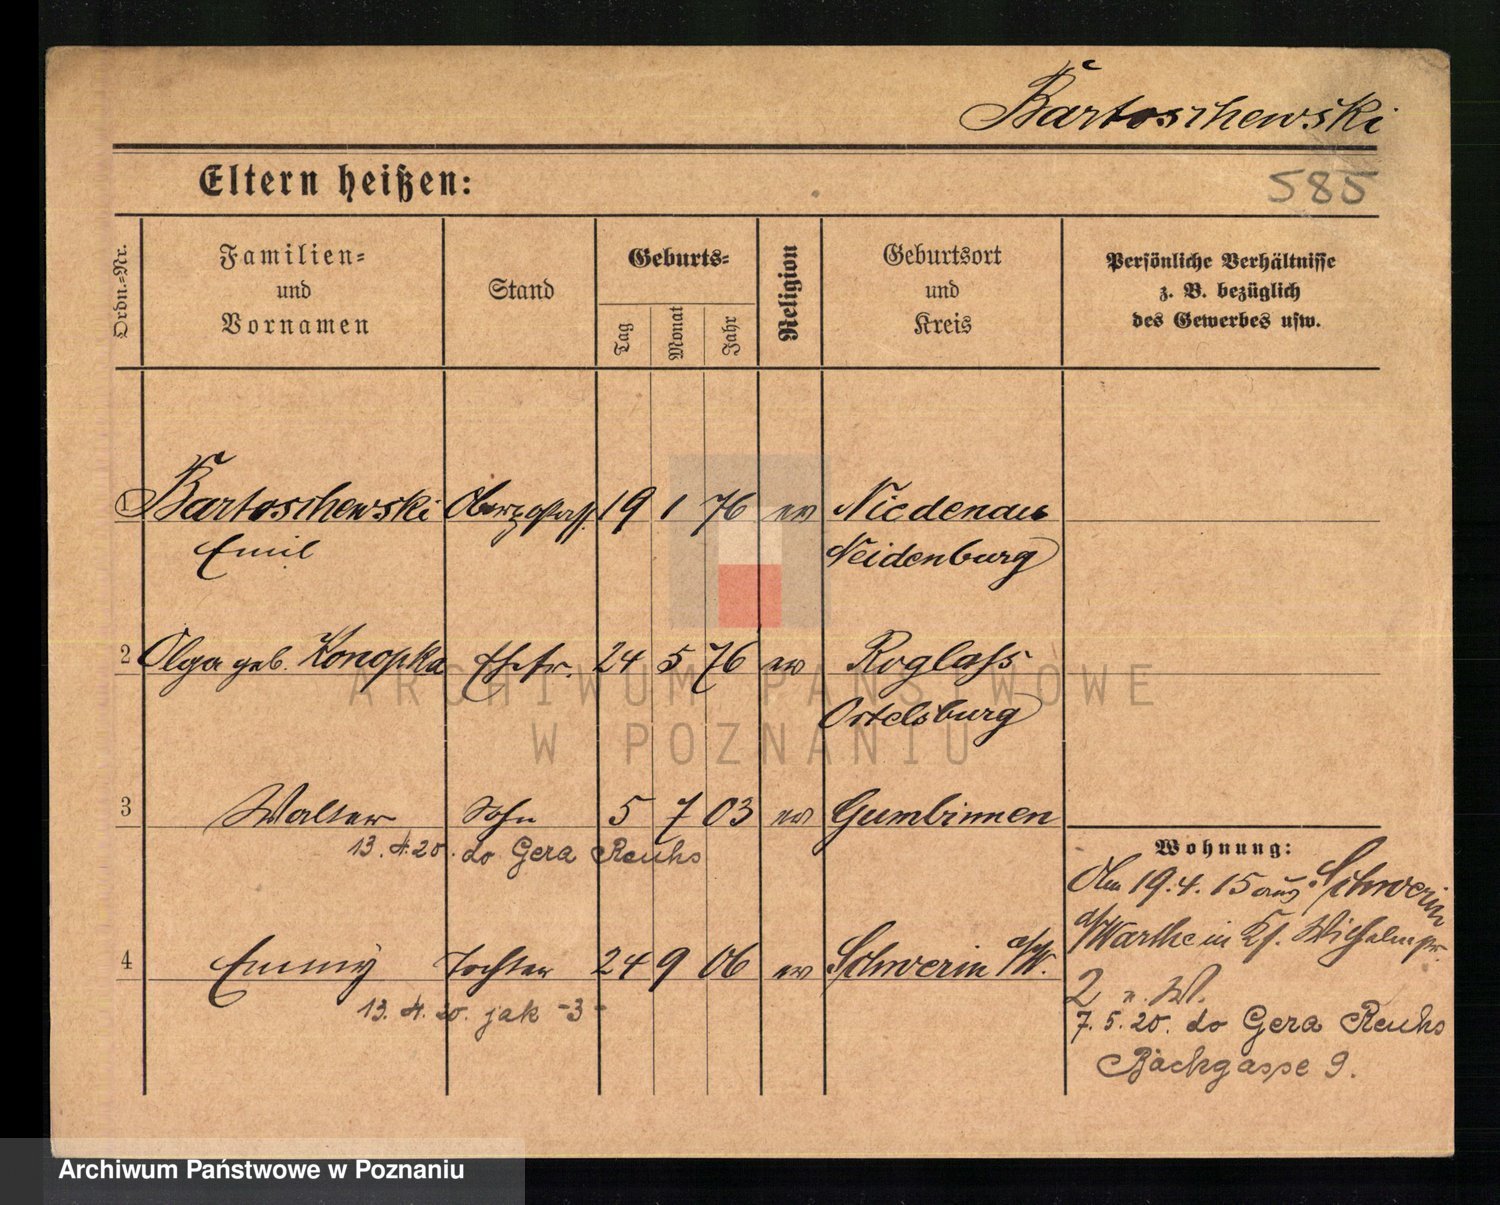 Bartoschewski
585
Eltern heißen:
Ordn.-Nr.
Familien-
und
Vornamen
Stand
Geburts-
Tag
Monat
Jahr
Religion
Geburtsort
und
Kreis
Persönliche Verhältnisse
z. B. bezüglich
des Gewerbes usw.
1 Bartoschewski 19 1 76 ev Niedenau
Emil Neidenburg
2 Olga geb. Konopka Ehefr. 24 5 76 ev Roglass
Ortelsburg
3 Walter Sohn 5 7 03 ev Gumbinnen
13.4.20. do Gera Reuhs
4 Emmy Tochter 24 9 06 ev Schwerin a/W.
13.4.20. jak -3-
Wohnung:
Am 19.4.15 aus Schwerin
a/Warthe in Wilhelmstr.
2 n. W.
7.5.20. do Gera Reuhs
Bachgasse 9.
ARCHIWUM PAŃSTWOWE
W POZNANIU
Archiwum Państwowe w Poznaniu